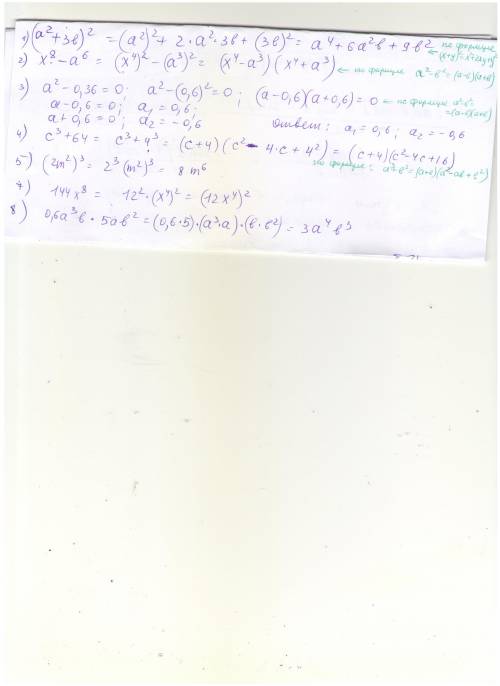 1) (a²+3в)² = (a²)² + 2·a²·3в + (3в)² = a⁴ + 6a²в + 9в² ← по формуле
(x+y)²=x²+2xy+y²
2) x⁸ - a⁶ = (x⁴)² - (a³)² = (x⁴ - a³)(x⁴ + a³) ← по формуле a²-в²=(a-в)(a+в)
3) a² - 0,36 = 0; a² - (0,6)² = 0; (a - 0,6)(a + 0,6) = 0 ← по формуле a²-в²=
=(a-в)(a+в)
a - 0,6 = 0; a₁ = 0,6;
a + 0,6 = 0; a₂ = -0,6 Ответ: a₁ = 0,6; a₂ = -0,6
4) c³ + 64 = c³ + 4³ = (c+4)(c² - 4·c + 4²) = (c+4)(c² - 4c + 16)
по формуле: a³+в³=(a+в)(a²-aв+в²)
5) (2m²)³ = 2³(m²)³ = 8m⁶
7) 144x⁸ = 12²·(x⁴)² = (12x⁴)²
8) 0,6a³в · 5aв² = (0,6·5)·(a³·a)·(в·в²) = 3a⁴в³